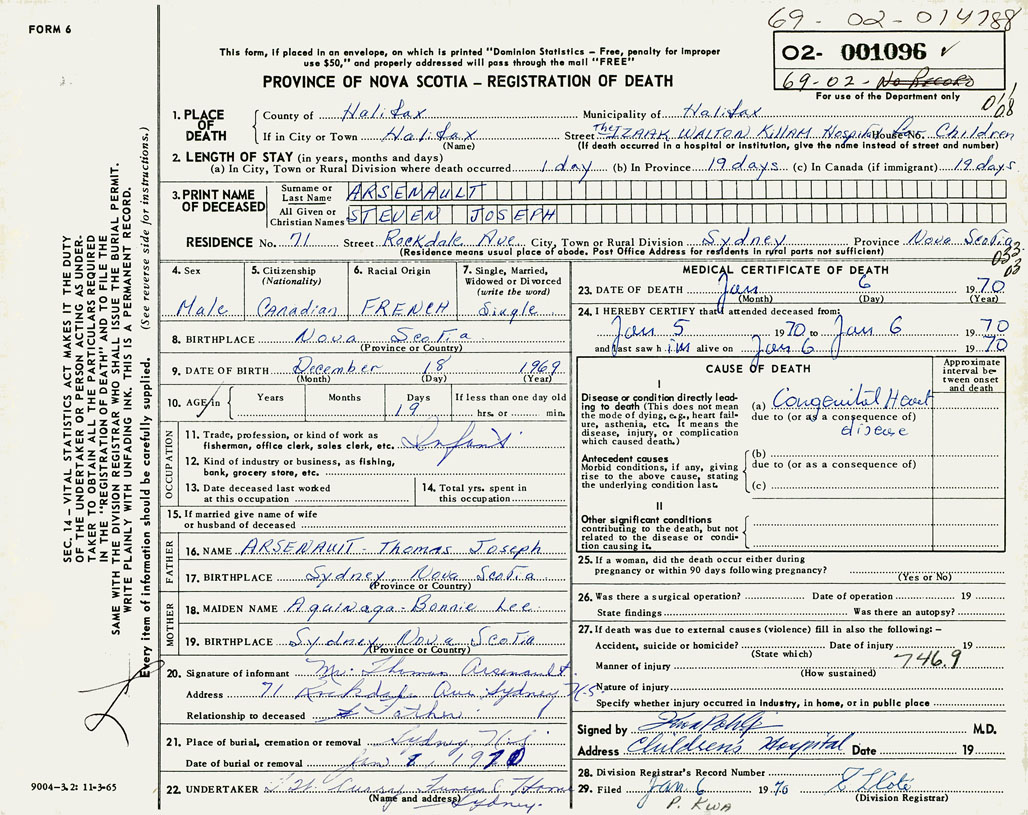 69-02-014788
FORM 6
02- 001096 ✓
69-02- No Record
For use of the Department only
This form, if placed in an envelope, on which is printed "Dominion Statistics – Free, penalty for improper
use $50," and properly addressed will pass through the mail "FREE"
PROVINCE OF NOVA SCOTIA – REGISTRATION OF DEATH
1. PLACE OF DEATH
County of Halifax Municipality of Halifax
If in City or Town Halifax Street The IZAAK WALTON KILLAM Hospital for Children House No.
(Name) (If death occurred in a hospital or institution, give the name instead of street and number)
2. LENGTH OF STAY (in years, months and days)
(a) In City, Town or Rural Division where death occurred 1 day (b) In Province 19 days (c) In Canada (if immigrant) 19 days
3. PRINT NAME OF DECEASED
Surname or Last Name ARSENAULT
All Given or Christian Names STEVEN JOSEPH
RESIDENCE No. 71 Street Rockdale Ave City, Town or Rural Division Sydney Province Nova Scotia
(Residence means usual place of abode. Post Office Address for residents in rural parts not sufficient)
4. Sex Male
5. Citizenship (Nationality) Canadian
6. Racial Origin FRENCH
7. Single, Married, Widowed or Divorced (write the word) Single
8. BIRTHPLACE Nova Scotia
(Province or Country)
9. DATE OF BIRTH December 18 1969
(Month) (Day) (Year)
10. AGE in Years Months Days 19 If less than one day old hrs. or min.
OCCUPATION
11. Trade, profession, or kind of work as fisherman, office clerk, sales clerk, etc. Infant
12. Kind of industry or business, as fishing, bank, grocery store, etc.
13. Date deceased last worked at this occupation
14. Total yrs. spent in this occupation
15. If married give name of wife or husband of deceased
FATHER
16. NAME ARSENAULT - Thomas Joseph
17. BIRTHPLACE Sydney, Nova Scotia
(Province or Country)
MOTHER
18. MAIDEN NAME Aquinaga - Bonnie Lee
19. BIRTHPLACE Sydney, Nova Scotia
(Province or Country)
20. Signature of informant Mr. Thomas Arsenault
Address 71 Rockdale Ave Sydney N.S.
Relationship to deceased Father
21. Place of burial, cremation or removal Sydney N.S.
Date of burial or removal Jan 8, 1970
22. UNDERTAKER Funeral Home
(Name and address) Sydney.
MEDICAL CERTIFICATE OF DEATH
23. DATE OF DEATH Jan 6 1970
(Month) (Day) (Year)
24. I HEREBY CERTIFY that I attended deceased from:
Jan 5 1970 to Jan 6 1970
and last saw h im alive on Jan 6 1970
CAUSE OF DEATH
Approximate interval between onset and death
I
Disease or condition directly leading to death (This does not mean the mode of dying, e.g., heart failure, asthenia, etc. It means the disease, injury, or complication which caused death.)
(a) Congenital Heart
due to (or as a consequence of)
disease
Antecedent causes
Morbid conditions, if any, giving rise to the above cause, stating the underlying condition last.
(b)
due to (or as a consequence of)
(c)
II
Other significant conditions
contributing to the death, but not related to the disease or condition causing it.
25. If a woman, did the death occur either during
pregnancy or within 90 days following pregnancy?
(Yes or No)
26. Was there a surgical operation? Date of operation 19
State findings Was there an autopsy?
27. If death was due to external causes (violence) fill in also the following: –
Accident, suicide or homicide? Date of injury 19
(State which)
746.9
Manner of injury
(How sustained)
Nature of injury
Specify whether injury occurred in Industry, in home, or in public place
Signed by M.D.
Address Children's Hospital Date 19
28. Division Registrar's Record Number
29. Filed Jan 6 1970
(Division Registrar)
P. KWA
SEC. 14 – VITAL STATISTICS ACT MAKES IT THE DUTY
OF THE UNDERTAKER OR PERSON ACTING AS UNDER-
TAKER TO OBTAIN ALL THE PARTICULARS REQUIRED
IN THE "REGISTRATION OF DEATH" AND TO FILE THE
SAME WITH THE DIVISION REGISTRAR WHO SHALL ISSUE THE BURIAL PERMIT.
WRITE PLAINLY WITH UNFADING INK. THIS IS A PERMANENT RECORD.
Every item of information should be carefully supplied. (See reverse side for instructions.)
9004-3.2: 11-3-65